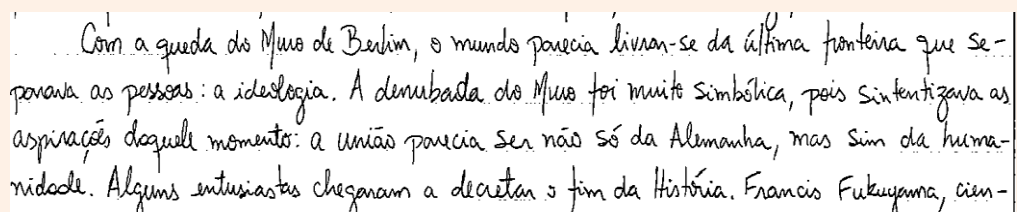 Com a queda do Muro de Berlim, o mundo parecia livrar-se da última fronteira que se-
parava as pessoas: a ideologia. A derrubada do Muro foi muito simbólica, pois sintentizava as
aspirações daquele momento: a união parecia ser não só da Alemanha, mas sim da huma-
nidade. Alguns entusiastas chegaram a decretar o fim da História. Francis Fukuyama, cien-